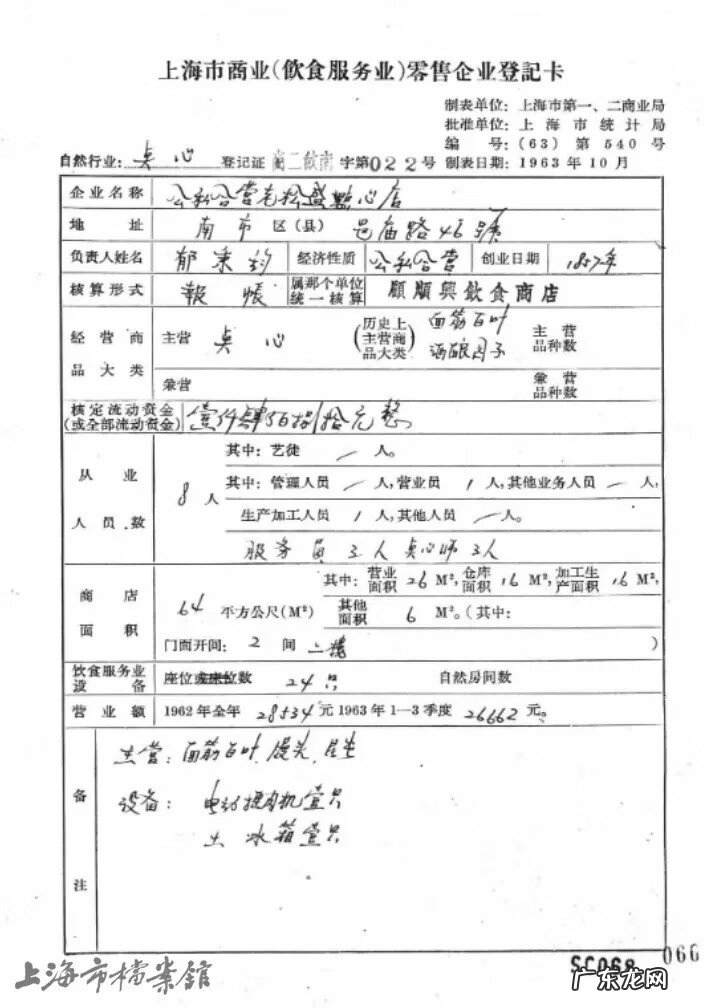 上海市商业(飲食服务业)零售企业登記卡
制表单位：上海市第一、二商业局
批准单位：上海市统计局
编号：(63)第540号
自然行业：点心 登记证 商二飲南 字第022号 制表日期：1963年10月
企业名称 公私合营老松盛點心店
地址 南市区(县) 邑庙路46號
负责人姓名 郁秉鈞 经济性质 公私合营 创业日期 1857年
核算形式 報帳 属那个单位统一核算 顧順興飲食商店
经营商品大类 主营 点心 (历史上主营商品大类) 面筋百叶 酒酿园子 主营品种数
兼营 兼营品种数
核定流动资金(或全部流动资金) 壹仟肆佰捌拾元整
从业人员数 8人 其中：艺徒 / 人。
其中：管理人员 / 人，营业员 1 人，其他业务人员 / 人，
生产加工人员 1 人，其他人员 / 人。
服务员3人 点心师3人
商店面积 64 平方公尺(M²) 其中：营业面积 26 M²，仓库面积 16 M²，加工生产面积 16 M²，
其他面积 6 M²。(其中：
门面开间：2 间 二楼 )
饮食服务业设备 座位或床位数 24只 自然房间数
营业额 1962年全年 28534 元 1963年1—3季度 26662 元。
备注
主营：面筋百叶、馒头、
设备：电动 肉机壹只
土冰箱壹只
上海市檔案館
SC068
066
广东龙网